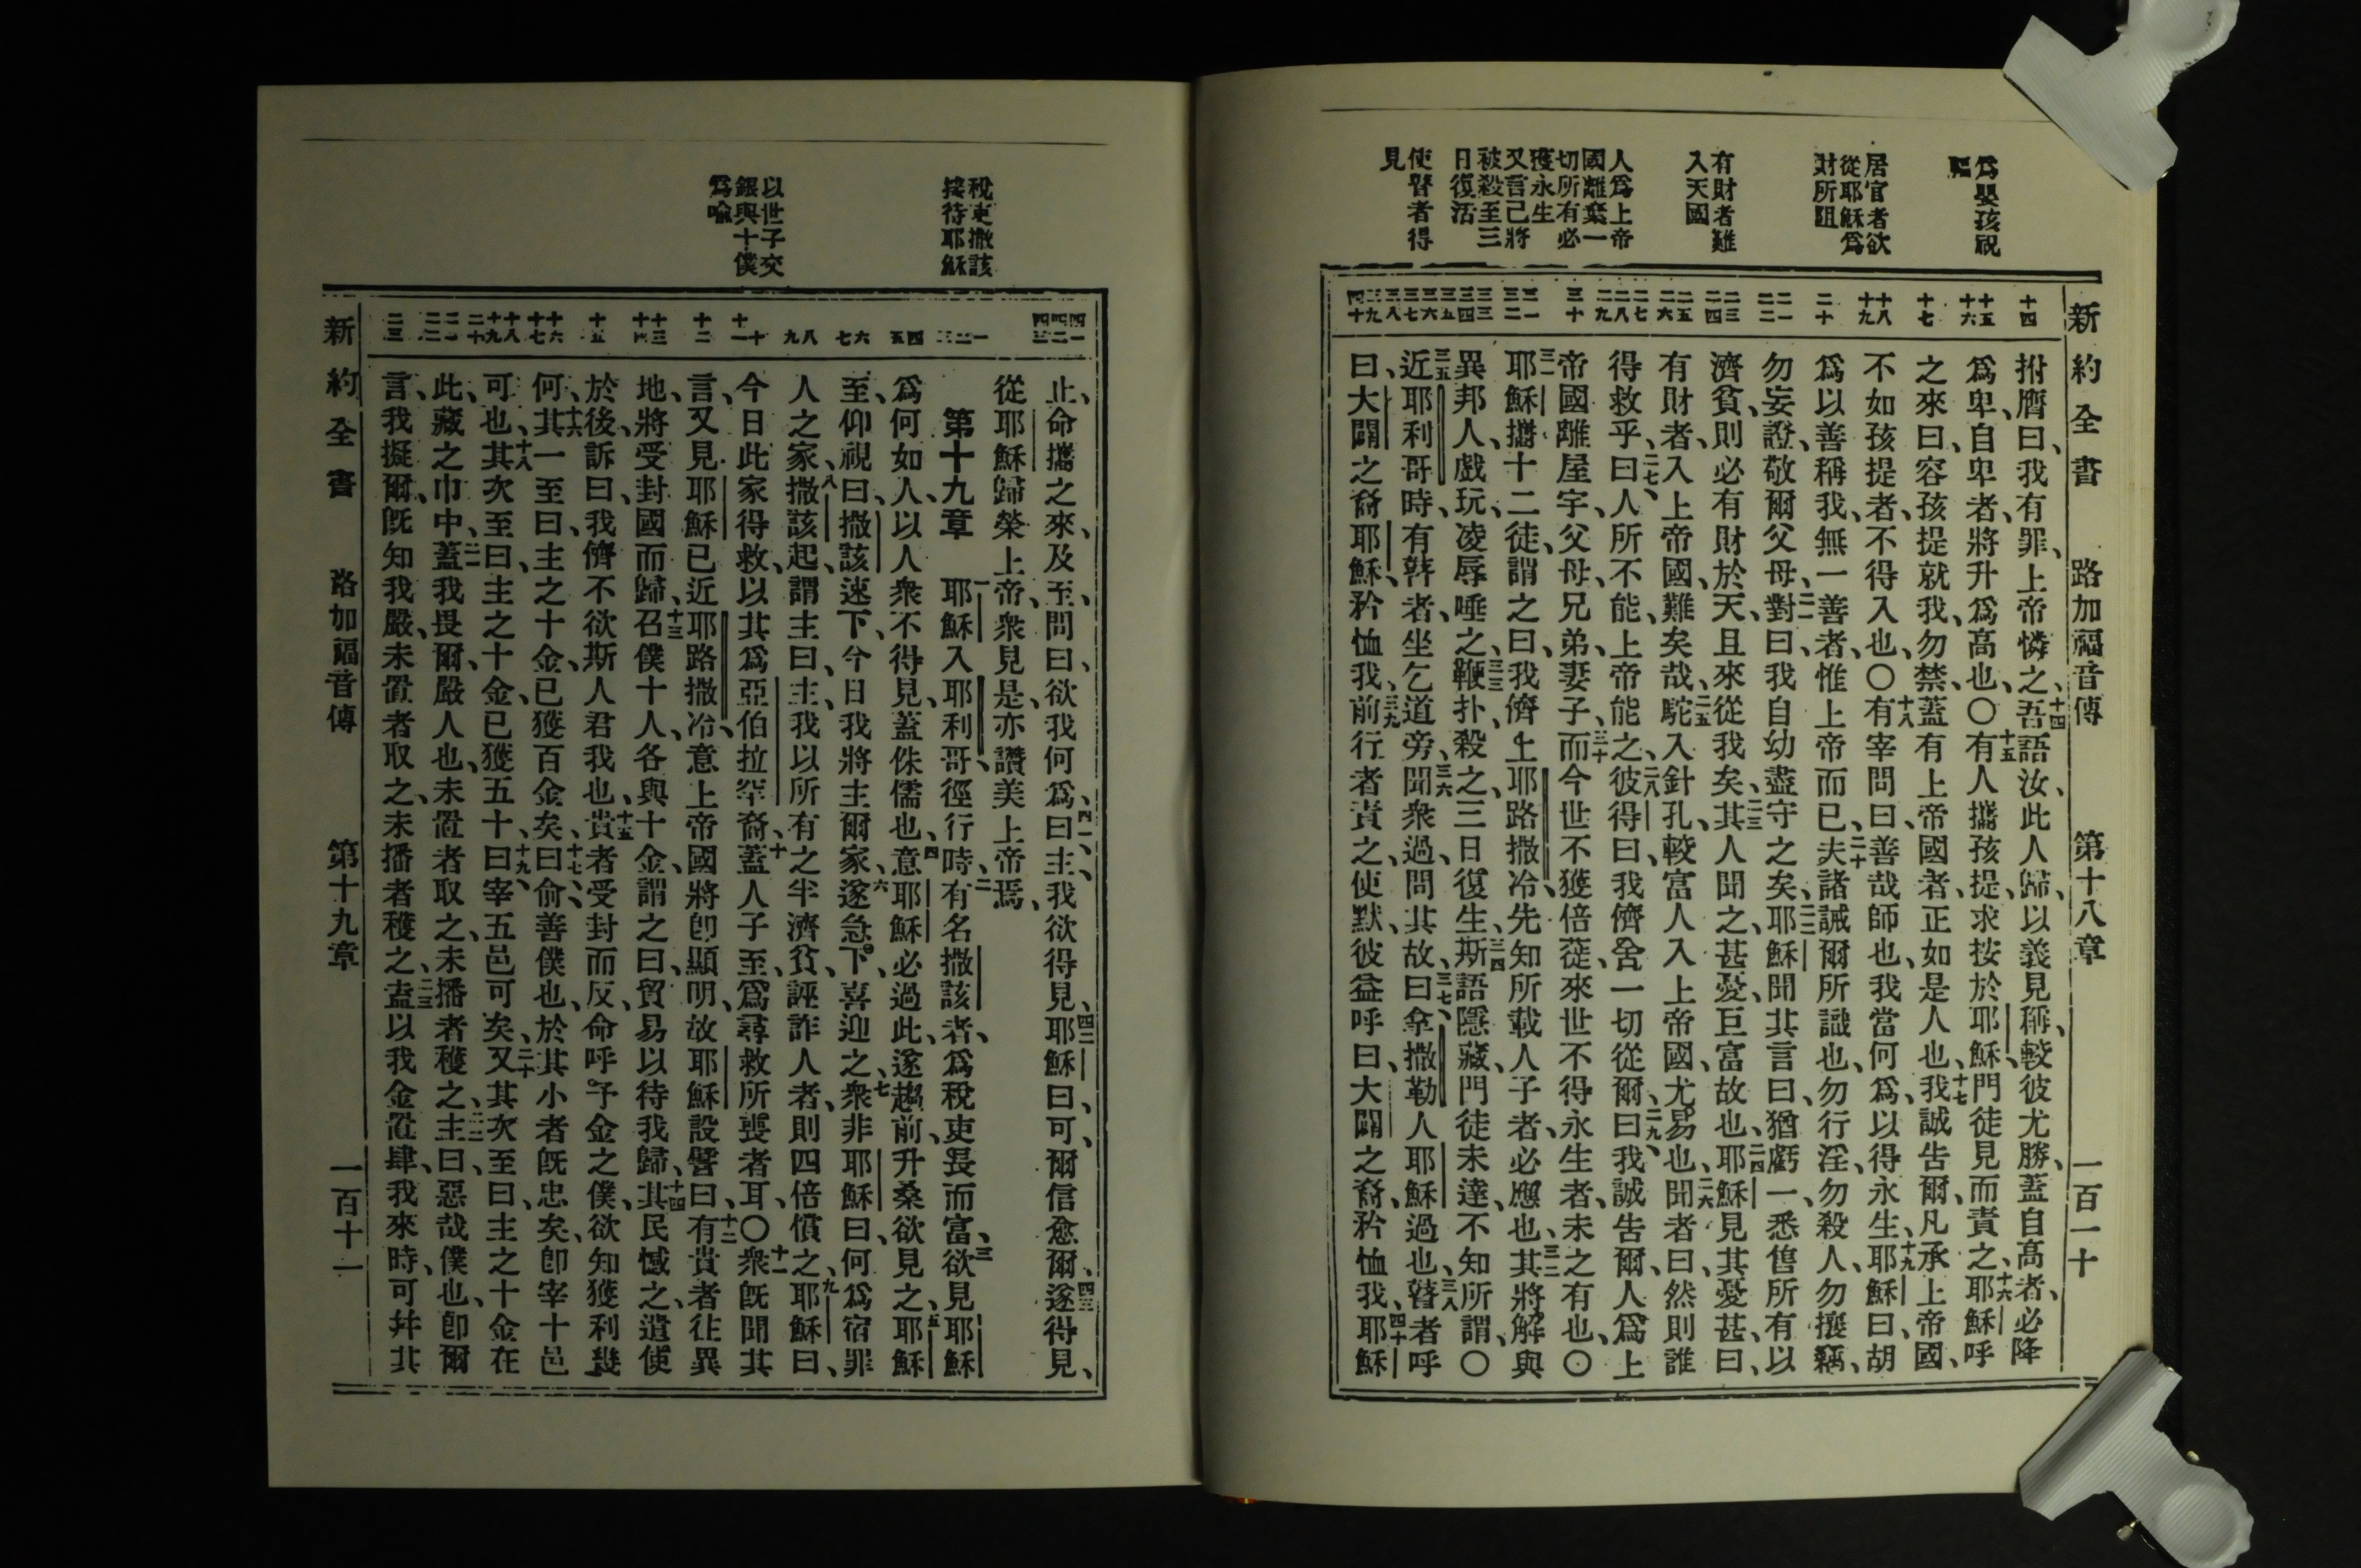 新約全書 路加福音傳 第十八章 一百一十
為嬰孩祝
居官者欲
從耶穌為
財所阻
有財者難
入天國
人為上帝
國離棄一
切所有必
獲永生
又言己將
被殺至三
日復活
使瞽者得
見
拊膺曰、我有罪、上帝憐之、十四吾語汝、此人歸、以義見稱、較彼尤勝、蓋自高者、必降
為卑、自卑者、將升為高也、〇十五有人攜孩提、求按於耶穌、門徒見而責之、十六耶穌呼
之來曰、容孩提就我、勿禁、蓋有上帝國者、正如是人也、十七我誠告爾、凡承上帝國、
不如孩提者、不得入也、〇十八有宰問曰、善哉師也、我當何為、以得永生、十九耶穌曰、胡
為以善稱我、無一善者、惟上帝而已、二十夫諸誡爾所識也、勿行淫、勿殺人、勿攘竊、
勿妄證、敬爾父母、二一對曰、我自幼盡守之矣、二二耶穌聞其言曰、猶虧一、悉售所有以
濟貧、則必有財於天、且來從我矣、二三其人聞之甚憂、巨富故也、二四耶穌見其憂甚曰、
有財者、入上帝國、難矣哉、二五駝入針孔、較富人入上帝國、尤易也、二六聞者曰、然則誰
得救乎、二七曰、人所不能、上帝能之、二八彼得曰、我儕舍一切從爾、二九曰、我誠告爾、人為上
帝國、離屋宇、父母、兄弟、妻子、三十而今世不獲倍蓰、來世不得永生者、未之有也、〇
三一耶穌攜十二徒、謂之曰、我儕上耶路撒冷、先知所載人子者、必應也、三二其將解與
異邦人、戲玩、凌辱、唾之、三三鞭扑、殺之、三日復生、三四斯語隱藏、門徒未達、不知所謂、〇
三五近耶利哥時、有瞽者、坐乞道旁、三六聞衆過、問其故、三七曰、拿撒勒人耶穌過也、三八瞽者呼
曰、大闢之裔耶穌、矜恤我、三九前行者責之、使默、彼益呼曰、大闢之裔、矜恤我、四十耶穌
稅吏撒該
接待耶穌
以世子交
銀與十僕
為喻
止、命攜之來、及至、問曰、欲我何為、四一曰、主、我欲得見、四二耶穌曰、可、爾信愈爾、四三遂得見、
從耶穌歸榮上帝、衆見是、亦讚美上帝焉、
第十九章 一耶穌入耶利哥、徑行時、二有名撒該者、為稅吏長而富、三欲見耶穌
為何如人、以人衆不得見、蓋侏儒也、四意耶穌必過此、遂趨前、升桑欲見之、五耶穌
至、仰視曰、撒該速下、今日我將主爾家、六遂急下、喜迎之、七衆非耶穌曰、何為宿罪
人之家、八撒該起、謂主曰、主、我以所有之半濟貧、誣詐人者、則四倍償之、九耶穌曰、
今日此家得救、以其為亞伯拉罕裔、十蓋人子至、為尋救所喪者耳、〇十一衆既聞其
言、又見耶穌已近耶路撒冷、意上帝國將即顯明、故耶穌設譬曰、十二有貴者往異
地、將受封國而歸、十三召僕十人、各與十金、謂之曰、貿易以待我歸、十四其民憾之、遣使
於後、訴曰、我儕不欲斯人君我也、十五貴者受封而反、命呼予金之僕、欲知獲利幾
何、十六其一至曰、主之十金、已獲百金矣、十七曰、俞、善僕也、於其小者既忠矣、卽宰十邑
可也、十八其次至曰、主之十金、已獲五十、十九曰、宰五邑可矣、二十又其次至曰、主之十金在
此、藏之巾中、二一蓋我畏爾、嚴人也、未置者取之、未播者穫之、二二主曰、惡哉僕也、卽爾
言、我擬爾、既知我嚴、未置者取之、未播者穫之、二三盍以我金置肆、我來時、可幷其
新約全書 路加福音傳 第十九章 一百十一